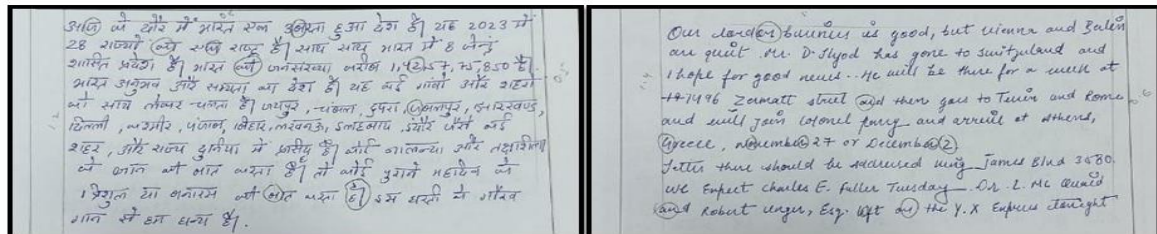 आज के दौर में भारत एक उभरता हुआ देश है। यह 2023 में
28 राज्यों का एक राष्ट्र है। साथ साथ भारत में 8 केन्द्र
शासित प्रदेश हैं। भारत की जनसंख्या करीब 1,42,57,75,850 है।
भारत अनुभव और सभ्यता का देश है। यह कई गांवों और शहरों
को साथ लेकर चलता है। जयपुर, चंबल, त्रिपुरा, जबलपुर, झारखण्ड,
दिल्ली, कश्मीर, पंजाब, बिहार, लखनऊ, इलाहाबाद, इंदौर जैसे कई
शहर, और राज्य दुनिया में प्रसिद्ध है। कोई नालन्दा और तक्षशिला
के ज्ञान की बात करता है। तो कोई पुराने महादेव के
त्रिशूल या बनारस की बात करता है। इस धरती के गौरव
गान से हम धन्य हैं।
Our london business is good, but vienna and Berlin
are quiet. Mr. D. Llyod has gone to Switzerland and
I hope for good news. He will be there for a week at
1496 Zermatt street and then goes to Turin and Rome
and will join colonel parry and arrive at Athens,
Greece, november 27 or December 2.
Letter there should be addressed King James Blvd 3580.
we Expect Charles E. Fuller Tuesday. Dr. L. Mc Quaid
and Robert unger, Esq. left on the Y.X Express tonight